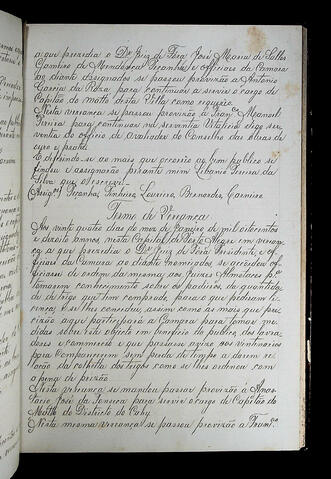 a que presidia o Dr. Juiz de Fóra José Maria de Salles
Carneiro de Mendonça Peçanha e officiaes da Camara
ao diante assignados se passou provizão a Antonio
Garcia da Roza para continuar a servir o cargo de
Capitão do matto desta Villa como requerêo
Nesta vereança se passou provizão a Franco. Manoel
Pereira para continuar na serventia Vitalicia digo ser-
ventia do officio de avaliador do Conselho das obras de
ouro e prata
E defirindo-se ao mais que ocorrêo ao bem publico se
findou e assignarão perante mim Libanio Pereira da
Silva que o escrevi
Peçanha, Pinheiro, Loureiro, Bernardes, Carneiro
Termo de Vereança
Aos vinte quatro dias do mez de Janeiro de mil oitocentos
e dezoito annos nesta Capital de Porto Alegre em verean-
ça a que presidio o Dr. Juiz de Fóra Presidente, e of-
ficiaes da Camara ao diante nomeados se accordou of-
ficiasse de ordem da mesma aos Juizes Almotaces pa.
tomarem conhecimento sobre os padeiros, da quantida-
de de trigo que tem comprado, para o que pediram li-
cença e se lhes concedeu, assim como ás mais que
participará a Camara para tomar me-
didas sobre este objecto em beneficio do publico, dos lavra-
dores e commercio e que passasse aviso aos vintenarios
para comparecerem sem perda de tempo a darem re-
lação da colheita dos trigos como se lhes ordenou com
a pena de prizão
Nesta vereança se mandou passar provizão á Anas-
tacio José da Fonseca para servir o cargo de Capitão do
Matto do Districto do Cahy
Nesta mesma vereança se passou provizão a